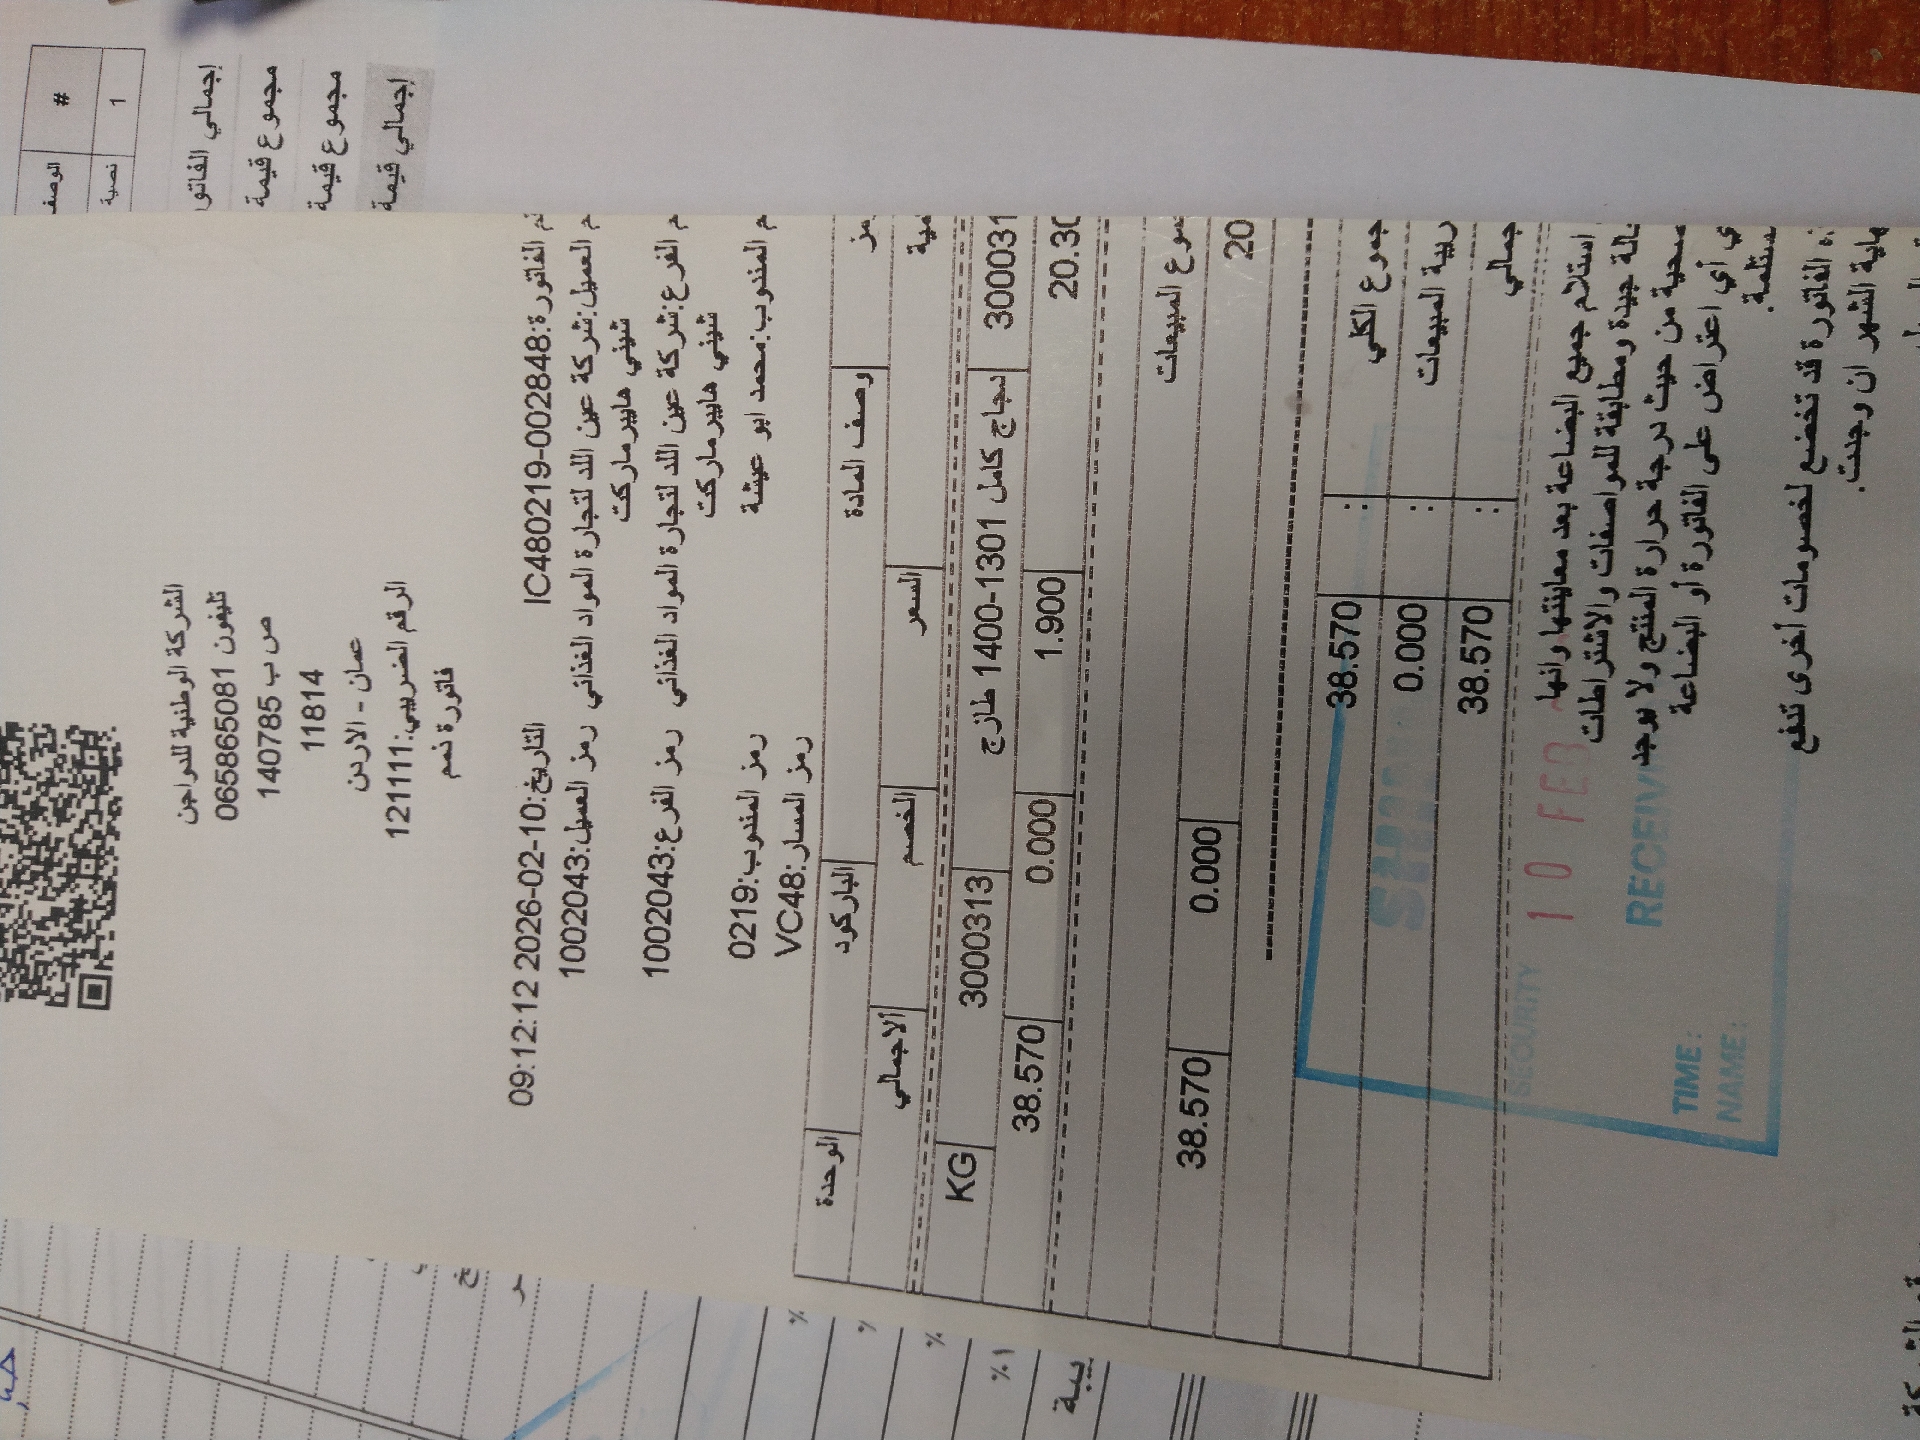 الشركة الوطنية للدواجن
تليفون 065865081
ص ب 140785
11814
عمان - الاردن
الرقم الضريبي:121111
فاتورة ذمم
الفاتورة:IC480219-002848 التاريخ:10-02-2026 09:12:12
العميل:شركة عين اللد لتجارة المواد الغذائي رمز العميل:1002043
شيني هايبر ماركت
الفرع:شركة عين اللد لتجارة المواد الغذائي رمز الفرع:1002043
شيني هايبر ماركت
المندوب:محمد ابو عيشة رمز المندوب:0219
رمز المسار:VC48
وصف المادة الباركود الوحدة
السعر الخصم الاجمالي
300031 دجاج كامل 1301-1400 طازج 3000313 KG
20.30 1.900 0.000 38.570
المبيعات
20 0.000 38.570
الكلي : 38.570
المبيعات : 0.000
: 38.570
استلام جميع البضاعة بعد معاينتها وانها
جيدة ومطابقة للمواصفات والاشتراطات
من حيث درجة حرارة المنتج ولا يوجد
أي اعتراض على الفاتورة أو البضاعة
الفاتورة قد تخضع لخصومات أخرى تدفع
الشهر ان وجدت.
SECURITY
10 FEB
RECEIV
TIME:
NAME:
#
1
الوصف
إجمالي
مجموع قيمة
مجموع قيمة
إجمالي قيمة
%
%
%
١%